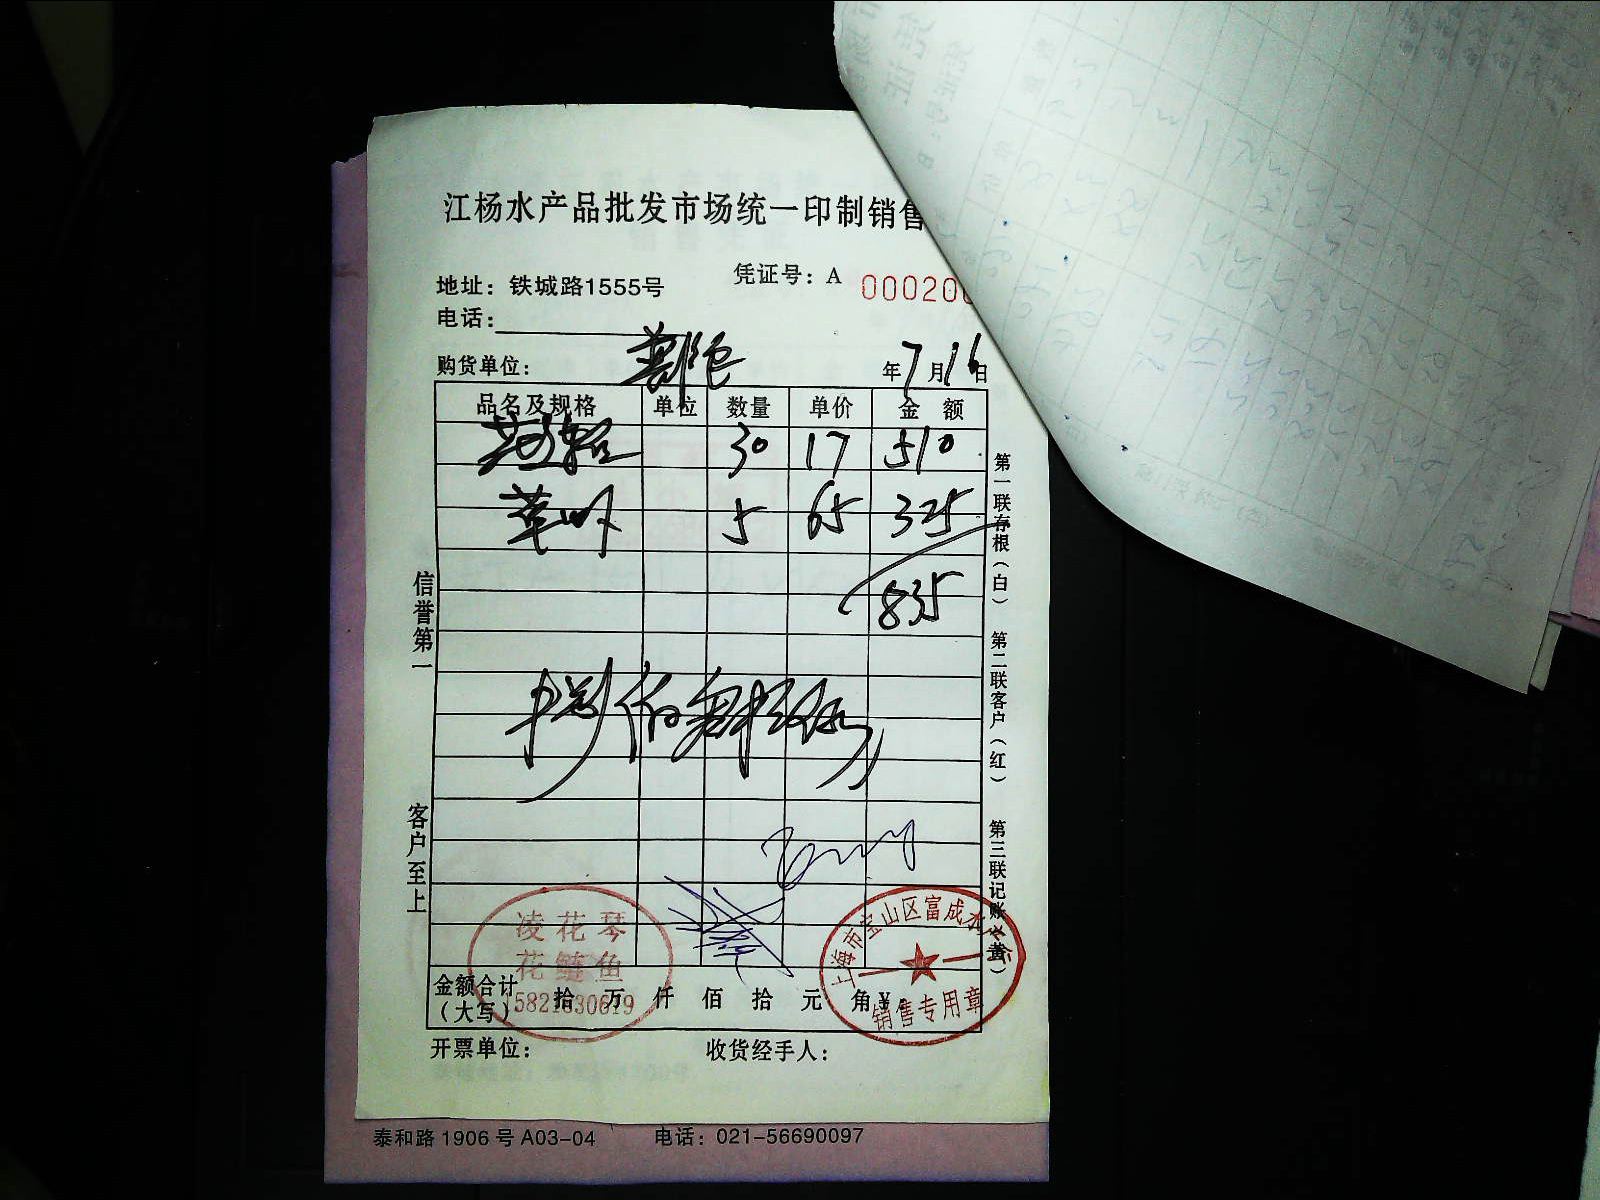 江杨水产品批发市场统一印制销售
凭证号：A 00020
地址：铁城路1555号
电话：
购货单位： 年7月16日
品名及规格 单位 数量 单价 金 额
30 17 510
草虾 5 65 325
835
捌佰叁拾伍
信誉第一
客户至上
第一联存根（白） 第二联客户（红） 第三联记账（黄）
凌花琴
花鲢鱼
上海市宝山区富成水
销售专用章
金额合计（大写） 拾 万 仟 佰 拾 元 角 ¥
开票单位： 收货经手人：
泰和路1906号A03-04 电话：021-56690097